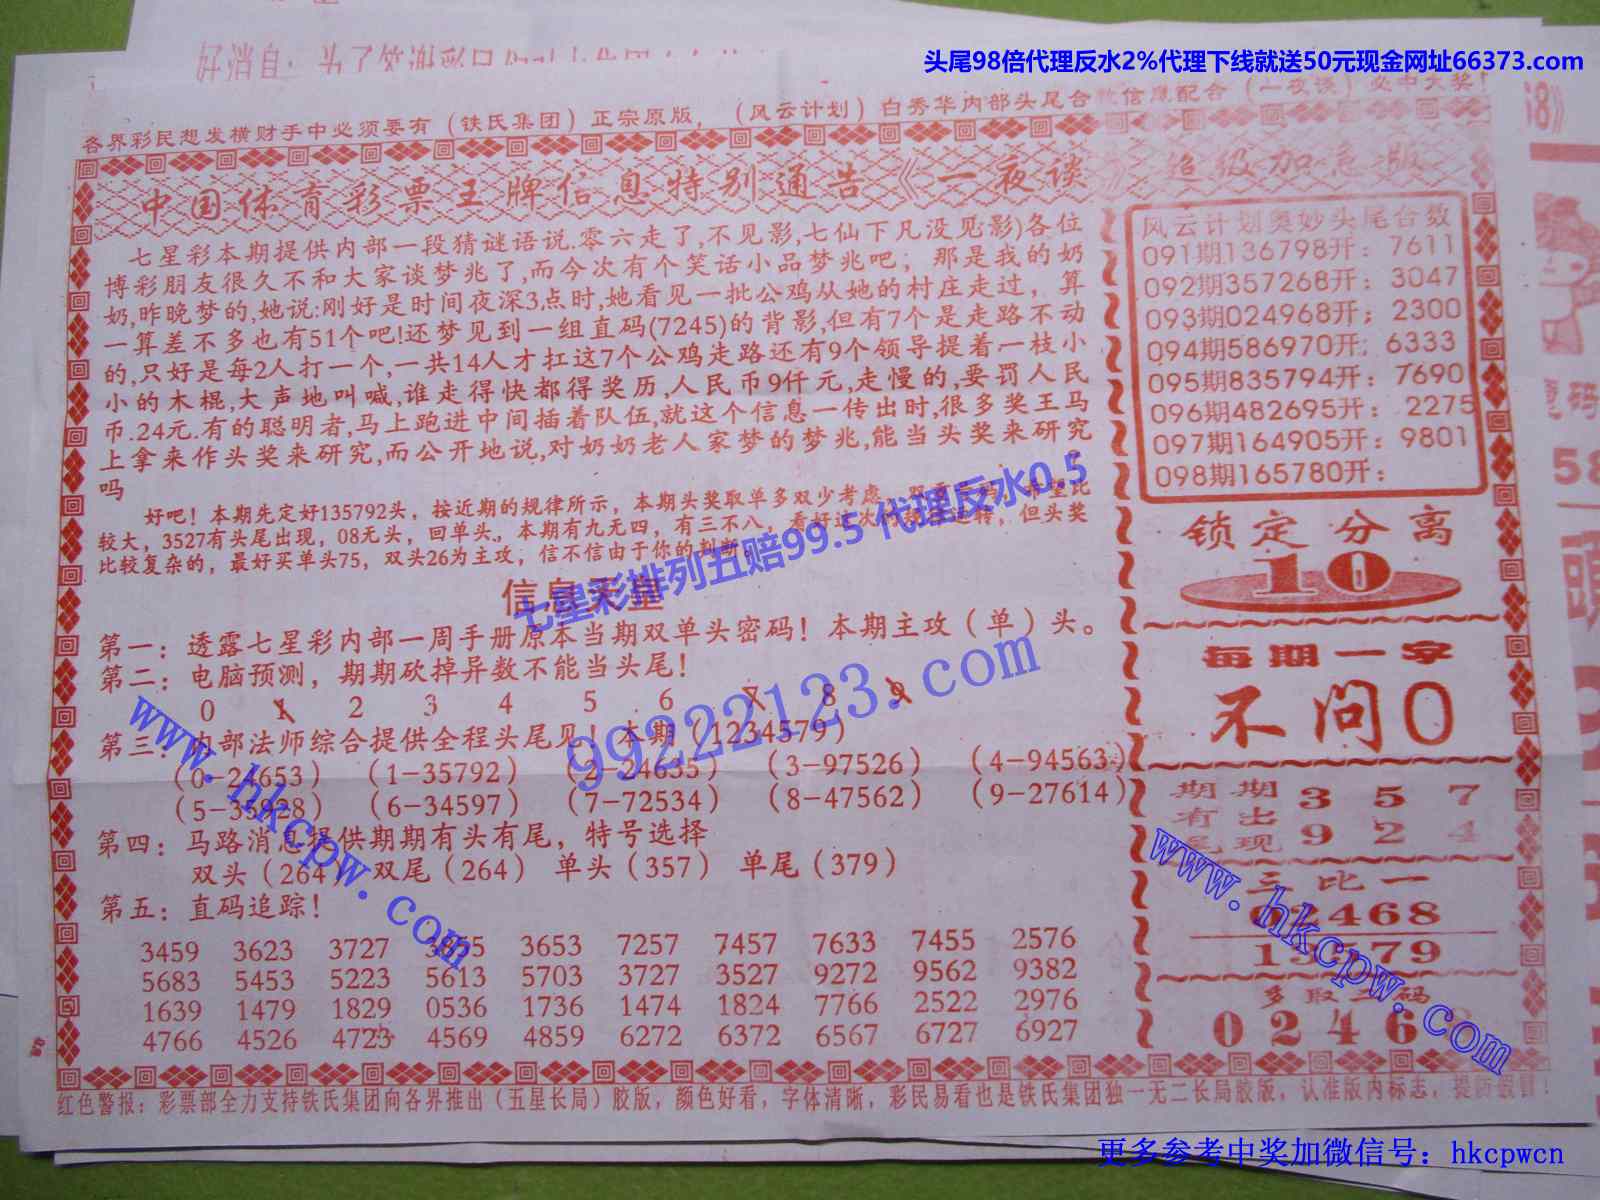 头尾98倍代理反水2%代理下线就送50元现金网址66373.com
好消自:
各界彩民想发横财手中必须要有（铁氏集团）正宗原版，（风云计划）白秀华内部头尾合数信息配合（一夜谈）必中大奖！
中国体育彩票王牌信息特别通告《一夜谈》超级加急版
七星彩本期提供内部一段猜谜语说.零六走了,不见影,七仙下凡没见影)各位
博彩朋友很久不和大家谈梦兆了,而今次有个笑话小品梦兆吧；那是我的奶
奶,昨晚梦的,她说:刚好是时间夜深3点时,她看见一批公鸡从她的村庄走过，算
一算差不多也有51个吧!还梦见到一组直码(7245)的背影,但有7个是走路不动
的,只好是每2人打一个,一共14人才扛这7个公鸡走路还有9个领导提着一枝小
小的木棍,大声地叫喊,谁走得快都得奖历,人民币9仟元,走慢的,要罚人民
币.24元.有的聪明者,马上跑进中间插着队伍,就这个信息一传出时,很多奖王马
上拿来作头奖来研究,而公开地说,对奶奶老人家梦的梦兆,能当头奖来研究
吗
好吧！本期先定好135792头，按近期的规律所示，本期头奖取单多双少考虑
较大，3527有头尾出现，08无头，回单头。本期有九无四，有三不八，看好这次
但头奖
比较复杂的，最好买单头75，双头26为主攻；信不信由于你的判断。
七星彩排列五赔99.5 代理反水0.5
信息天皇
第一：透露七星彩内部一周手册原本当期双单头密码！本期主攻（单）头。
第二：电脑预测，期期砍掉异数不能当头尾！
0 1 2 3 4 5 6 7 8 9
第三：内部法师综合提供全程头尾见！本期（1234579）
（0-24653）（1-35792）（2-24635）（3-97526）（4-94563）
（5-35928）（6-34597）（7-72534）（8-47562）（9-27614）
第四：马路消息提供期期有头有尾，特号选择
双头（264） 双尾（264） 单头（357） 单尾（379）
第五：直码追踪！
3459 3623 3727 3653 7257 7457 7633 7455 2576
5683 5453 5223 5613 5703 3727 3527 9272 9562 9382
1639 1479 1829 0536 1736 1474 1824 7766 2522 2976
4766 4526 4723 4569 4859 6272 6372 6567 6727 6927
风云计划奥妙头尾合数
091期136798开：7611
092期357268开：3047
093期024968开；2300
094期586970开；6333
095期835794开：7690
096期482695开：2275
097期164905开：9801
098期165780开：
锁定分离
10
每期一字
不问0
期期 3 5 7
有出
尾现 9 2 4
三比一
02468
13579
多取二码
0 2 4 6 8
红色警报：彩票部全力支持铁氏集团向各界推出（五星长局）胶版，颜色好看，字体清晰，彩民易看也是铁氏集团独一无二长局胶版，认准版内标志，提防假冒！
www.hkcpw.com
99222123.com
www.hkcpw.com
更多参考中奖加微信号：hkcpwcn